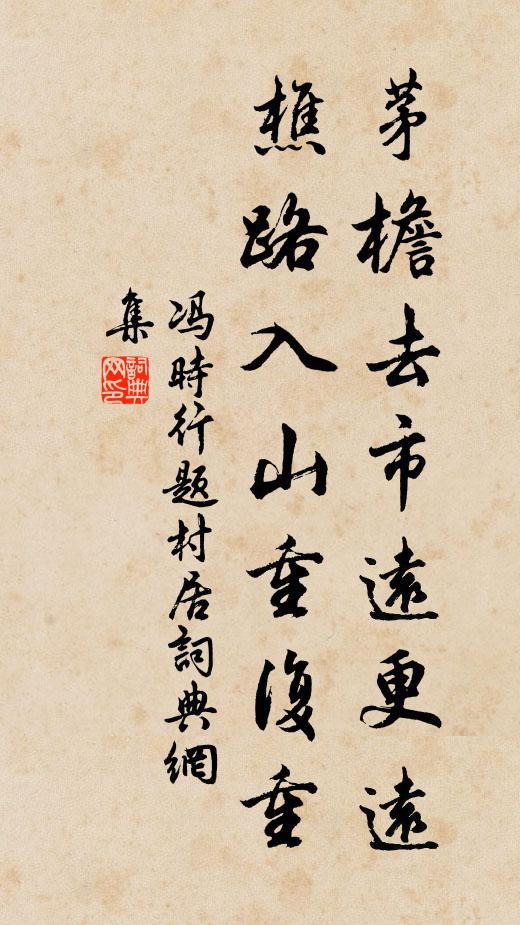 茅檐去市遠更遠
樵路入山重復重
冯時行题村居詞典網
集
詞典
网印